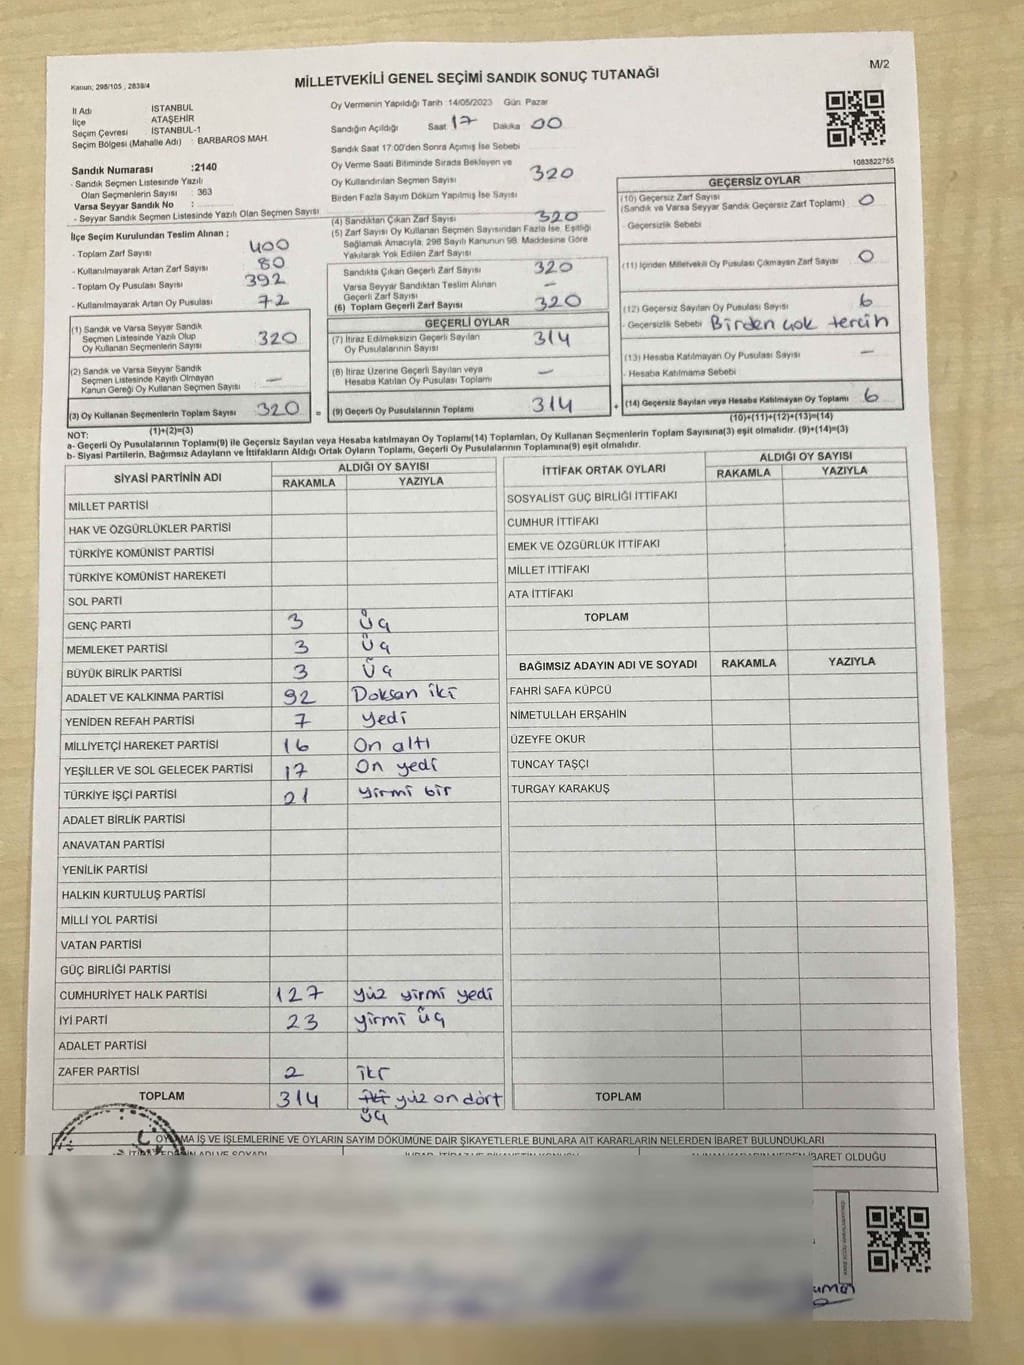 M/2
Kanun; 298/105 , 2839/4
MİLLETVEKİLİ GENEL SEÇİMİ SANDIK SONUÇ TUTANAĞI
İl Adı İSTANBUL
İlçe ATAŞEHİR
Seçim Çevresi İSTANBUL-1
Seçim Bölgesi (Mahalle Adı) : BARBAROS MAH.
Sandık Numarası :2140
- Sandık Seçmen Listesinde Yazılı
Olan Seçmenlerin Sayısı : 363
Varsa Seyyar Sandık No :
- Seyyar Sandık Seçmen Listesinde Yazılı Olan Seçmen Sayısı
İlçe Seçim Kurulundan Teslim Alınan ;
- Toplam Zarf Sayısı 400
- Kullanılmayarak Artan Zarf Sayısı 80
- Toplam Oy Pusulası Sayısı 392
- Kullanılmayarak Artan Oy Pusulası 72
(1) Sandık ve Varsa Seyyar Sandık
Seçmen Listesinde Yazılı Olup
Oy Kullanan Seçmenlerin Sayısı 320
(2) Sandık ve Varsa Seyyar Sandık
Seçmen Listesinde Kayıtlı Olmayan
Kanun Gereği Oy Kullanan Seçmen Sayısı —
(3) Oy Kullanan Seçmenlerin Toplam Sayısı 320 =
(1)+(2)=(3)
Oy Vermenin Yapıldığı Tarih :14/05/2023 Gün: Pazar
Sandığın Açıldığı Saat: 17 Dakika 00
Sandık Saat 17:00'den Sonra Açımış İse Sebebi
Oy Verme Saati Bitiminde Sırada Bekleyen ve
Oy Kullandırılan Seçmen Sayısı 320
Birden Fazla Sayım Döküm Yapılmış İse Sayısı
(4) Sandıktan Çıkan Zarf Sayısı 320
(5) Zarf Sayısı Oy Kullanan Seçmen Sayısından Fazla İse, Eşitliği
Sağlamak Amacıyla, 298 Sayılı Kanunun 98. Maddesine Göre
Yakılarak Yok Edilen Zarf Sayısı
Sandıkta Çıkan Geçerli Zarf Sayısı 320
Varsa Seyyar Sandıktan Teslim Alınan
Geçerli Zarf Sayısı —
(6) Toplam Geçerli Zarf Sayısı 320
GEÇERLİ OYLAR
(7) İtiraz Edilmeksizin Geçerli Sayılan
Oy Pusulalarının Sayısı 314
(8) İtiraz Üzerine Geçerli Sayılan veya
Hesaba Katılan Oy Pusulası Toplamı —
(9) Geçerli Oy Pusulalarının Toplamı 314 +
1083822755
GEÇERSİZ OYLAR
(10) Geçersiz Zarf Sayısı 0
(Sandık ve Varsa Seyyar Sandık Geçersiz Zarf Toplamı)
- Geçersizlik Sebebi
(11) İçinden Milletvekili Oy Pusulası Çıkmayan Zarf Sayısı 0
(12) Geçersiz Sayılan Oy Pusulası Sayısı 6
- Geçersizlik Sebebi Birden çok tercih
(13) Hesaba Katılmayan Oy Pusulası Sayısı —
- Hesaba Katılmama Sebebi
(14) Geçersiz Sayılan veya Hesaba Katılmayan Oy Toplamı 6
(10)+(11)+(12)+(13)=(14)
NOT:
a- Geçerli Oy Pusulalarının Toplamı(9) ile Geçersiz Sayılan veya Hesaba katılmayan Oy Toplamı(14) Toplamları, Oy Kullanan Seçmenlerin Toplam Sayısına(3) eşit olmalıdır. (9)+(14)=(3)
b- Siyasi Partilerin, Bağımsız Adayların ve İttifakların Aldığı Ortak Oyların Toplamı, Geçerli Oy Pusulalarının Toplamına(9) eşit olmalıdır.
SİYASİ PARTİNİN ADI ALDIĞI OY SAYISI
RAKAMLA YAZIYLA
MİLLET PARTİSİ
HAK VE ÖZGÜRLÜKLER PARTİSİ
TÜRKİYE KOMÜNİST PARTİSİ
TÜRKİYE KOMÜNİST HAREKETİ
SOL PARTİ
GENÇ PARTİ 3 üç
MEMLEKET PARTİSİ 3 üç
BÜYÜK BİRLİK PARTİSİ 3 üç
ADALET VE KALKINMA PARTİSİ 92 Doksan iki
YENİDEN REFAH PARTİSİ 7 yedi
MİLLİYETÇİ HAREKET PARTİSİ 16 On altı
YEŞİLLER VE SOL GELECEK PARTİSİ 17 On yedi
TÜRKİYE İŞÇİ PARTİSİ 21 yirmi bir
ADALET BİRLİK PARTİSİ
ANAVATAN PARTİSİ
YENİLİK PARTİSİ
HALKIN KURTULUŞ PARTİSİ
MİLLİ YOL PARTİSİ
VATAN PARTİSİ
GÜÇ BİRLİĞİ PARTİSİ
CUMHURİYET HALK PARTİSİ 127 yüz yirmi yedi
İYİ PARTİ 23 yirmi üç
ADALET PARTİSİ
ZAFER PARTİSİ 2 iki
TOPLAM 314 iki yüz on dört
üç
İTTİFAK ORTAK OYLARI ALDIĞI OY SAYISI
RAKAMLA YAZIYLA
SOSYALİST GÜÇ BİRLİĞİ İTTİFAKI
CUMHUR İTTİFAKI
EMEK VE ÖZGÜRLÜK İTTİFAKI
MİLLET İTTİFAKI
ATA İTTİFAKI
TOPLAM
BAĞIMSIZ ADAYIN ADI VE SOYADI RAKAMLA YAZIYLA
FAHRİ SAFA KÜPCÜ
NİMETULLAH ERŞAHİN
ÜZEYFE OKUR
TUNCAY TAŞÇI
TURGAY KARAKUŞ
TOPLAM
OYLAMA İŞ VE İŞLEMLERİNE VE OYLARIN SAYIM DÖKÜMÜNE DAİR ŞİKAYETLERLE BUNLARA AİT KARARLARIN NELERDEN İBARET BULUNDUKLARI
İBARET OLDUĞU